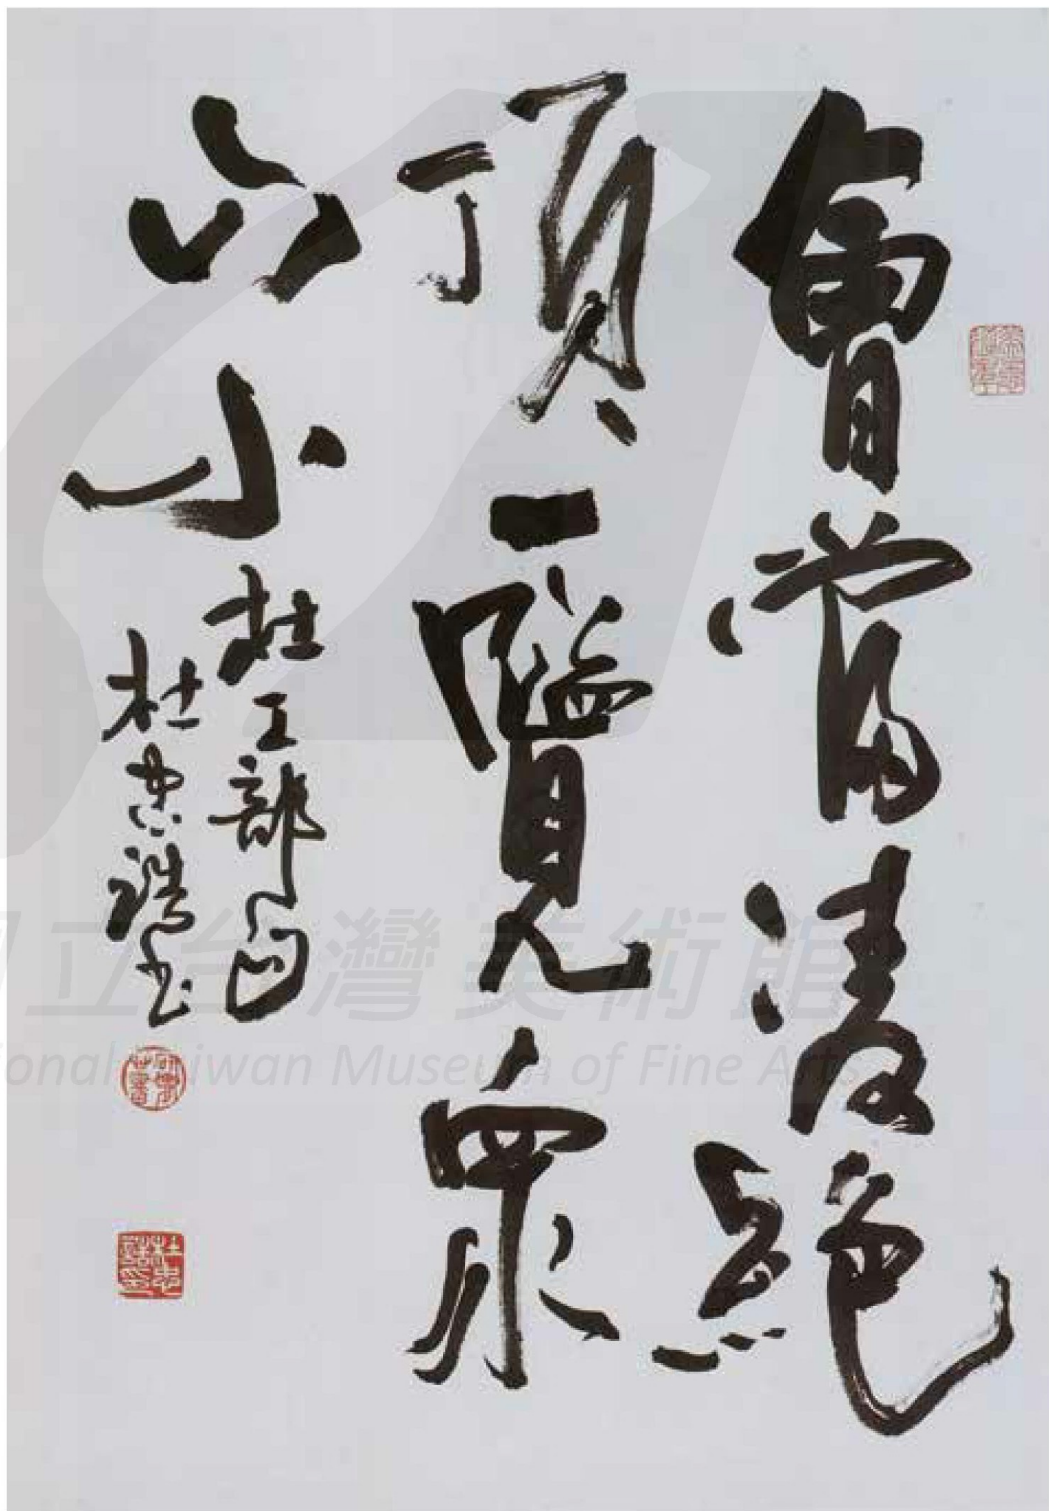 會當凌絕
頂一覽眾
山小
杜工部句
杜忠誥書
杜忠誥印
國立台灣美術館
National Taiwan Museum of Fine Arts